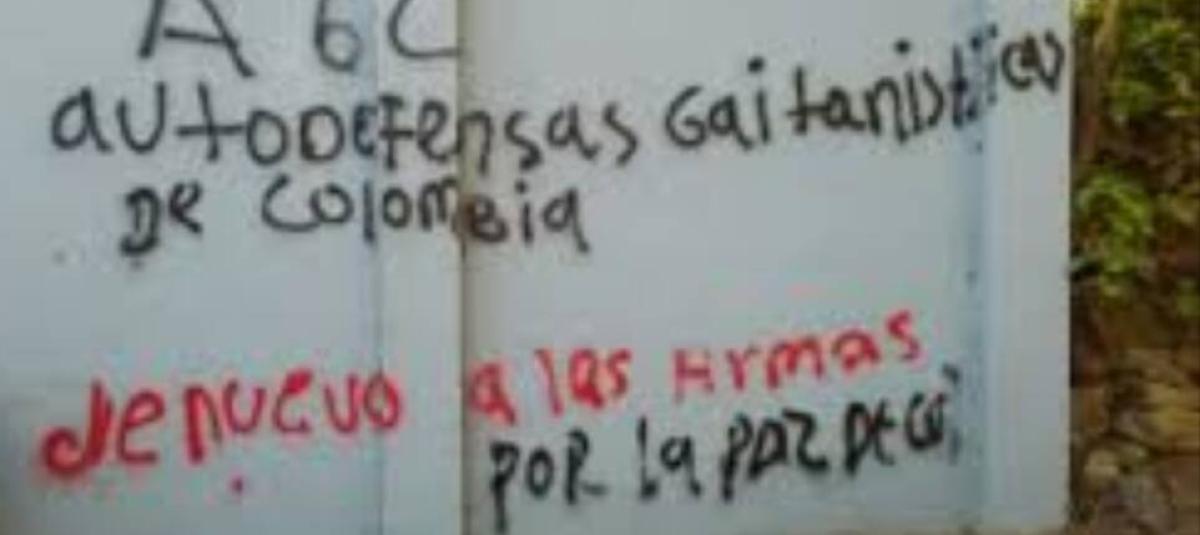 AGC
autodefensas Gaitanistas
De Colombia
de nuevo a las Armas
POR la PAZ De Co